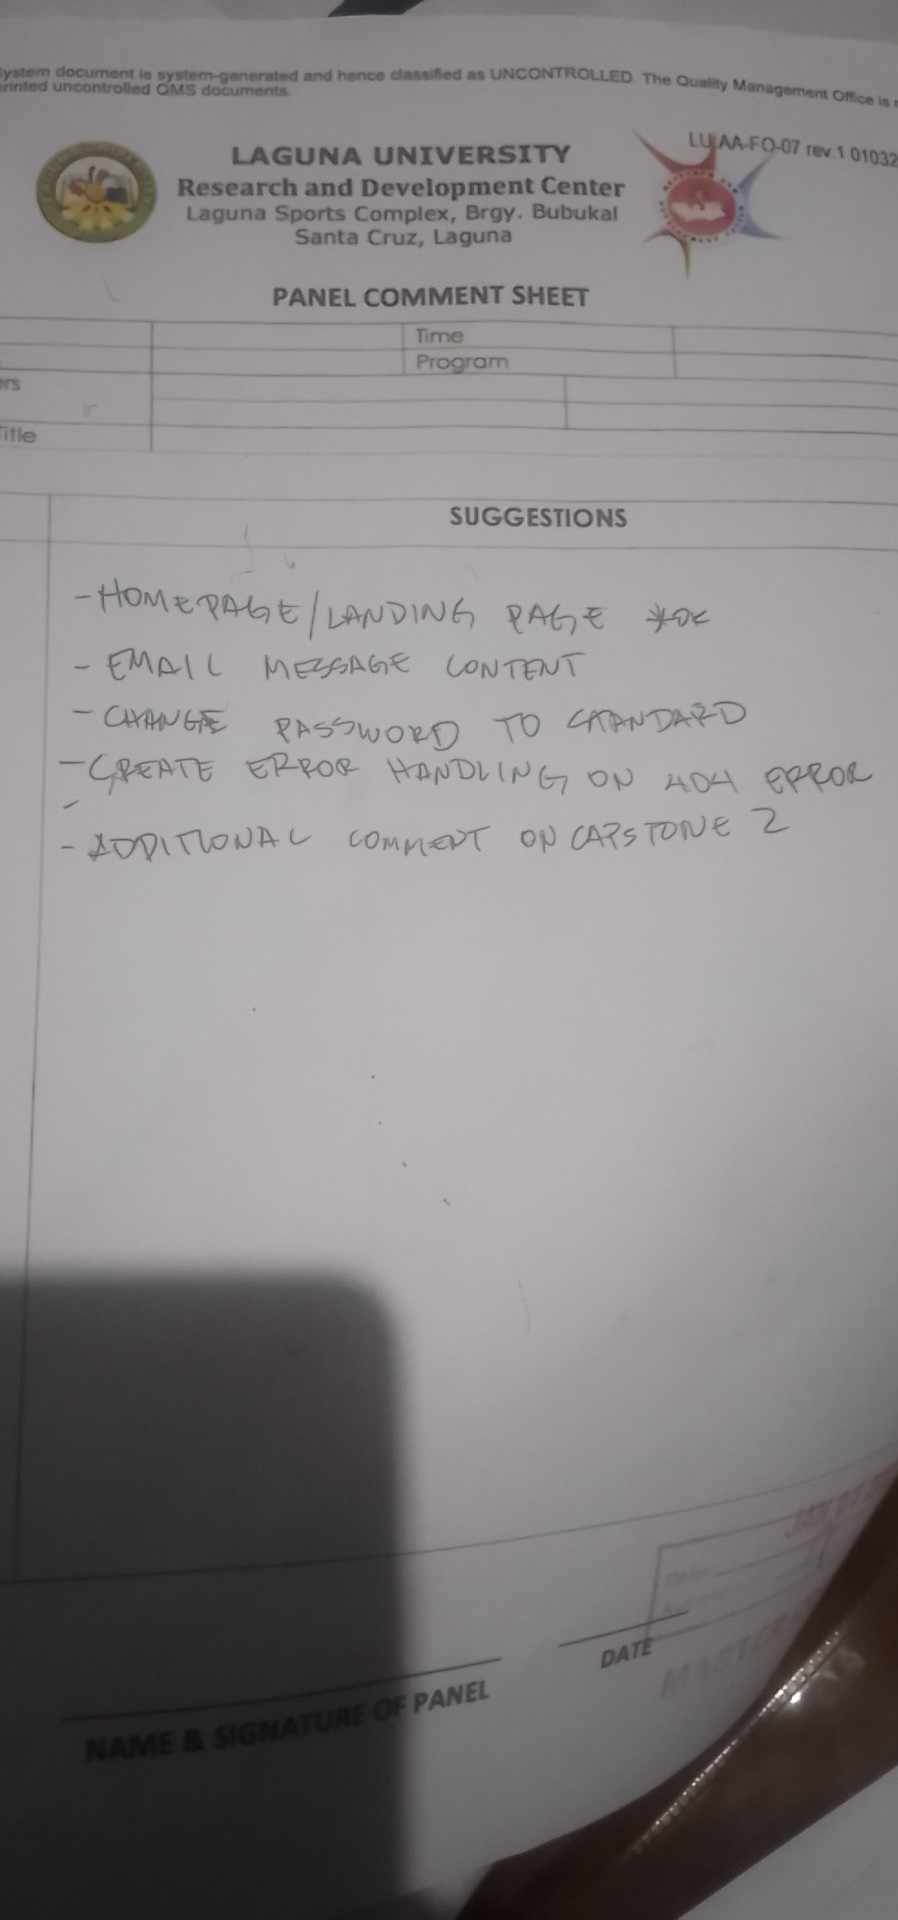 ystem document is system-generated and hence classified as UNCONTROLLED. The Quality Management Office is
printed uncontrolled QMS documents.
LU-AA-FO-07 rev.1 01032
LAGUNA UNIVERSITY
Research and Development Center
Laguna Sports Complex, Brgy. Bubukal
Santa Cruz, Laguna
PANEL COMMENT SHEET
Time
Program
ers
Title
SUGGESTIONS
- HOMEPAGE/LANDING PAGE
- EMAIL MESSAGE CONTENT
- CHANGE PASSWORD TO STANDARD
- CREATE ERROR HANDLING ON 404 ERROR
- ADDITIONAL COMMENT ON CAPSTONE 2
NAME & SIGNATURE OF PANEL
DATE
MASTER